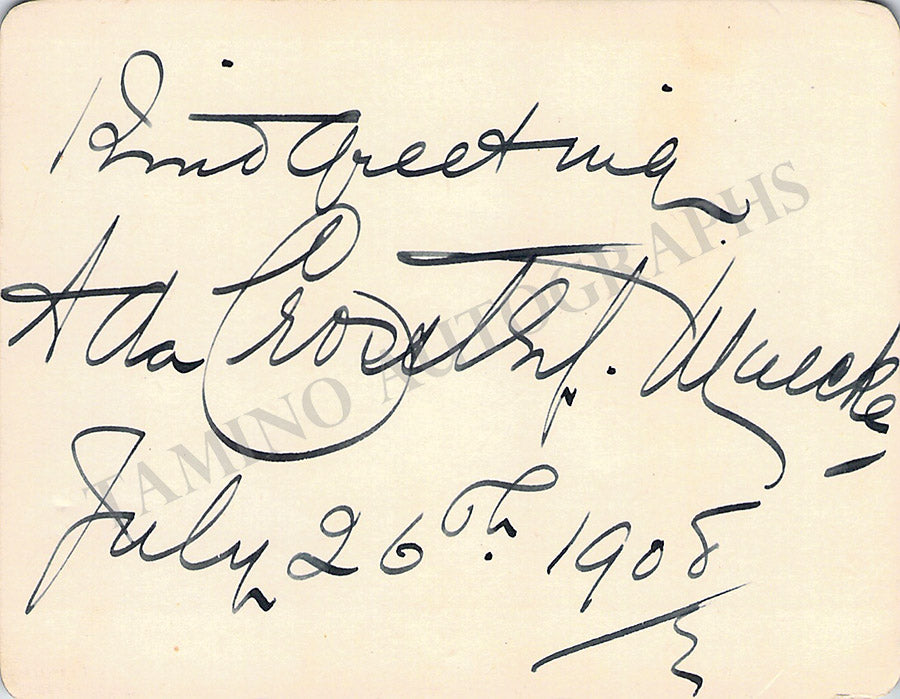 Kind Greeting
Ada Crossley. Muecke
July 26th 1908
TAMINO AUTOGRAPHS